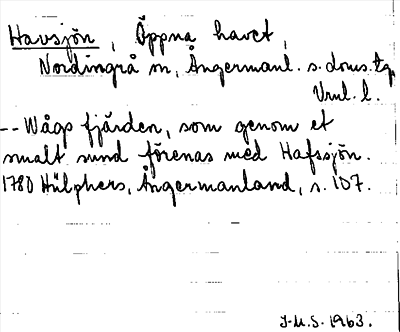 Havsjön, Öppna havet,
Nordingrå sn, Ångermanl. s. doms. tg.
Vrnl. l.
-- Wågs fjärden, som genom et
smalt sund förenas med Hafssjön.
1780 Hülphers, Ångermanland, s. 107.
J.M.S. 1963.